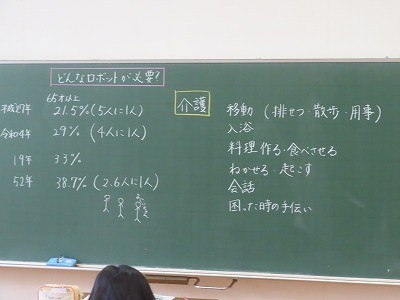 どんなロボットが必要?
65才以上
平成17年 21.5% (5人に1人)
令和4年 29% (4人に1人)
19年 33%
52年 38.7% (2.6人に1人)
介護
移動 (排せつ・散歩・用事)
入浴
料理 作る・食べさせる
ねかせる・起こす
会話
困った時の手伝い